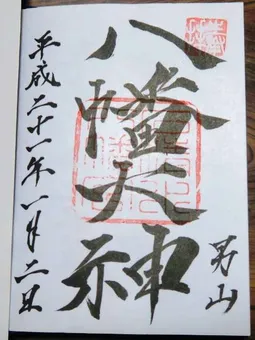 男山
八幡大神
平成二十一年一月二日